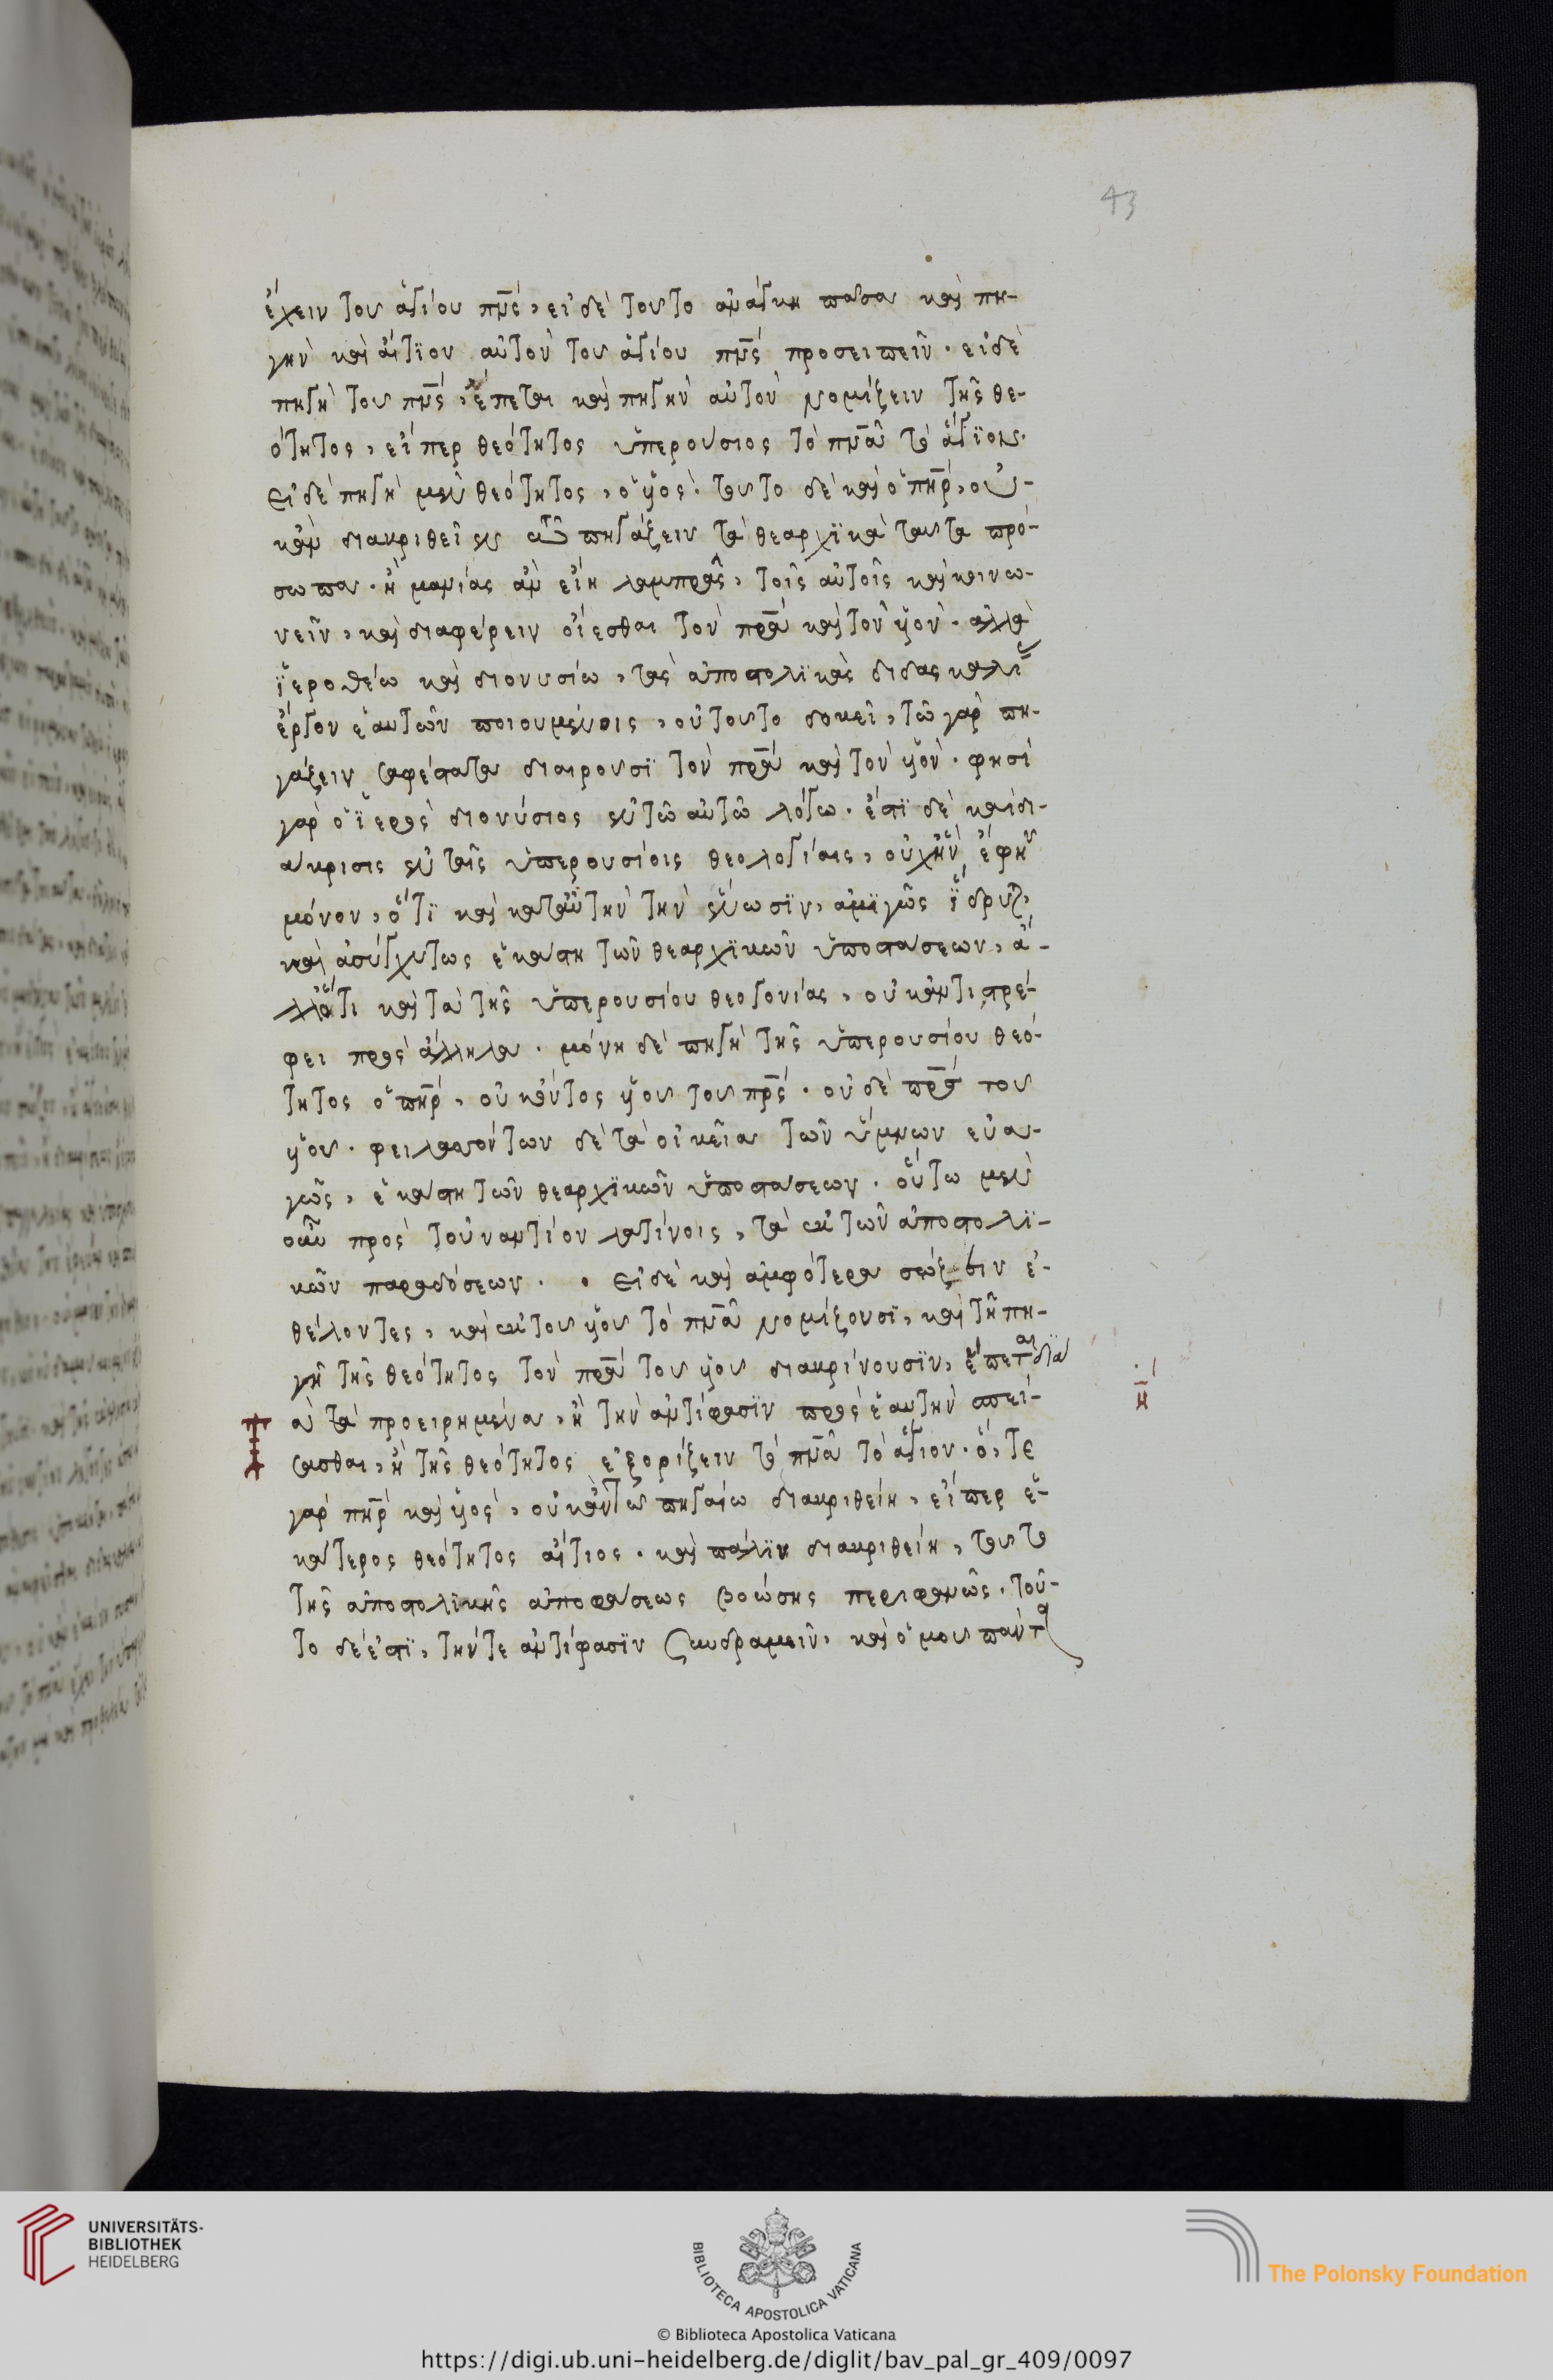 43
ἔχειν τοῦ ἁγίου πνς, εἰ δὲ τοῦτο ἀνάγκη πᾶσα καὶ πη-
γὴν καὶ αἴτϊον αὐτὸν τοῦ ἁγίου πνς προσειπεῖν. εἰ δὲ
πηγὴ τοῦ πνς, ἕπεται καὶ πηγὴν αὐτὸν νομίζειν τῆς θε-
ότητος, εἴπερ θεότητος ὑπερούσιος τὸ πνα τὸ ἅγϊον.
Εἰ δὲ πηγὴ μὲν θεότητος, ὁ ὑός. τοῦτο δὲ καὶ ὁ πηρ, οὐ-
κ ἂν διακριθεῖεν τῶ πηγάζειν τὰ θεαρχϊκὰ ταῦτα πρό-
σωπα. ἢ μανίας ἂν εἴη λαμπρᾶς, τοῖς αὐτοῖς καὶ κοινω-
νεῖν, καὶ διαφέρειν οἴεσθαι τὸν πρα καὶ τὸν ὑόν. ἀλλὰ
ϊεροθέω καὶ διονυσίω, τὰς ἀποστολϊκὰς διδασκαλί
ἔργον ἑαυτῶν ποιουμένοις, οὐ τοῦτο δοκεῖ, τῶ γὰρ πη-
γάζειν σαφέστατα διαιροῦσϊ τὸν πρα καὶ τὸν ὑόν. φησὶ
γὰρ ὁ ϊερὸς διονύσιος ἐν τῶ αὐτῶ λόγω. ἔστϊ δὲ καὶ δι-
άκρισις ἐν ταῖς ὑπερουσίοις θεολογίαις, οὐχ ἣν ἔφην
μόνον, ὅτϊ καὶ κατ αὐτὴν τὴν ἕνωσϊν, ἀμϊγῶς ϊδρυτ,
καὶ ἀσύγχυτως ἑκάστη τῶν θεαρχϊκῶν ὑποστάσεων, ἀ-
λλ ὅτι καὶ τὰ τῆς ὑπερουσίου θεογονίας, οὐκ ἀντιστρέ-
φει πρὸς ἄλληλα. μόνη δὲ πηγὴ τῆς ὑπερουσίου θεό-
τητος ὁ πηρ, οὐκ ὄντος ὑοῦ τοῦ πρς. οὐδὲ πρς τοῦ
ὑοῦ. φυλαττόντων δὲ τὰ οἰκεῖα τῶν ὕμνων εὐα-
γῶς, ἑκάστη τῶν θεαρχϊκῶν ὑποστάσεων. οὕτω μὲν
οὖν πρὸς τοὐναντίον λατίνοις, τὰ ἐκ τῶν ἀποστολϊ-
κῶν παραδόσεων. . Εἰ δὲ καὶ ἀμφότερα σώζειν ἐ-
θέλοντες, καὶ ἐκ τοῦ ὑοῦ τὸ πνα νομίζουσϊ, καὶ τῆ πη-
γῆ τῆς θεότητος τὸν πρα τοῦ ὑοῦ διακρίνουσϊν, ἕπεται διὰ
ὰ τὰ προειρημένα, ἢ τὴν ἀντίφασϊν πρὸς ἑαυτὴν σπεί-
σασθαι, ἢ τῆς θεότητος ἐξορίζειν τὸ πνα τὸ ἅγιον. ὅ, τε
γὰρ πηρ καὶ ὑός, οὐκ ἂν τῶ πηγαίω διακριθείη, εἴπερ ἑ-
κάτερος θεότητος αἴτιος. καὶ πάλϊν διακριθείη, τοῦτο
τῆς ἀποστολϊκῆς ἀποφάσεως βοώσης περιφανῶς. τοῦ-
το δέ ἐστϊ, τήν τε ἀντίφασϊν συνδραμεῖν, καὶ ὁμοῦ πάντα
η
UNIVERSITÄTS-
BIBLIOTHEK
HEIDELBERG
BIBLIOTECA APOSTOLICA VATICANA
The Polonsky Foundation
© Biblioteca Apostolica Vaticana
https://digi.ub.uni-heidelberg.de/diglit/bav_pal_gr_409/0097